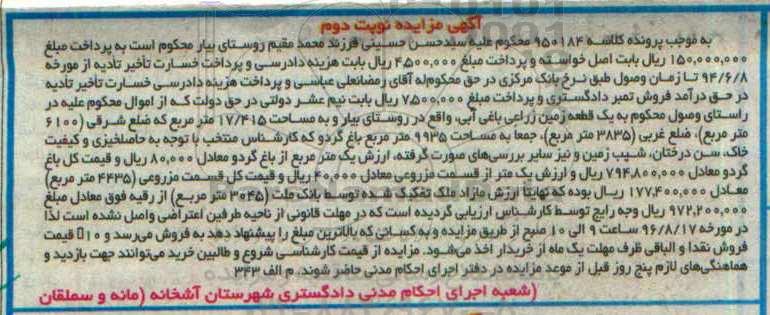 آگهی مزایده نوبت دوم
به موجب پرونده کلاسه ۹۵۰۱۸۴ محکوم علیه سیدحسن حسینی فرزند محمد مقیم روستای بیار محکوم است به پرداخت مبلغ
۱۵۰,۰۰۰,۰۰۰ ریال بابت اصل خواسته و پرداخت مبلغ ۴,۵۰۰,۰۰۰ ریال بابت هزینه دادرسی و پرداخت خسارت تأخیر تادیه از مورخه
۹۴/۶/۸ تا زمان وصول طبق نرخ بانک مرکزی در حق محکوم‌له آقای رمضانعلی عباسی و پرداخت هزینه دادرسی خسارت تأخیر تادیه
در حق درآمد فروش تمبر دادگستری و پرداخت مبلغ ۷,۵۰۰,۰۰۰ ریال بابت نیم عشر دولتی در حق دولت که از اموال محکوم علیه در
راستای وصول محکوم به یک قطعه زمین زراعی باغی آبی، واقع در روستای بیار و به مساحت ۱۷/۴۱۵ متر مربع که ضلع شرقی (۶۱۰۰
متر مربع)، ضلع غربی (۳۸۳۵ متر مربع)، جمعا به مساحت ۹۹۳۵ متر مربع باغ گردو که کارشناس منتخب با توجه به حاصلخیزی و کیفیت
خاک، سن درختان، شیب زمین و نیز سایر بررسی‌های صورت گرفته، ارزش یک متر مربع از باغ گردو معادل ۸۰,۰۰۰ ریال و قیمت کل باغ
گردو معادل ۷۹۴,۸۰۰,۰۰۰ ریال و ارزش یک متر از قسمت مزروعی معادل ۴۰,۰۰۰ ریال و قیمت کل قسمت مزروعی (۴۴۳۵ متر مربع)
معادل ۱۷۷,۴۰۰,۰۰۰ ریال بوده که نهایتاً ارزش مازاد ملک تفکیک شده توسط بانک ملت (۳۰۴۵ متر مربع) از رقبه فوق معادل مبلغ
۹۷۲,۲۰۰,۰۰۰ ریال وجه رایج توسط کارشناس ارزیابی گردیده است که در مهلت قانونی از ناحیه طرفین اعتراضی واصل نشده است لذا
در مورخه ۹۶/۸/۱۷ ساعت ۹ الی ۱۰ صبح از طریق مزایده و به کسانی که بالاترین مبلغ را پیشنهاد دهد به فروش می‌رسد و ۱۰ قیمت
فروش نقدا و الباقی ظرف مهلت یک ماه از خریدار اخذ می‌شود. مزایده از قیمت کارشناسی شروع و طالبین خرید می‌توانند جهت بازدید و
هماهنگی‌های لازم پنج روز قبل از موعد مزایده در دفتر اجرای احکام مدنی حاضر شوند. م الف ۳۴۳
(شعبه اجرای احکام مدنی دادگستری شهرستان آشخانه (مانه و سملقان